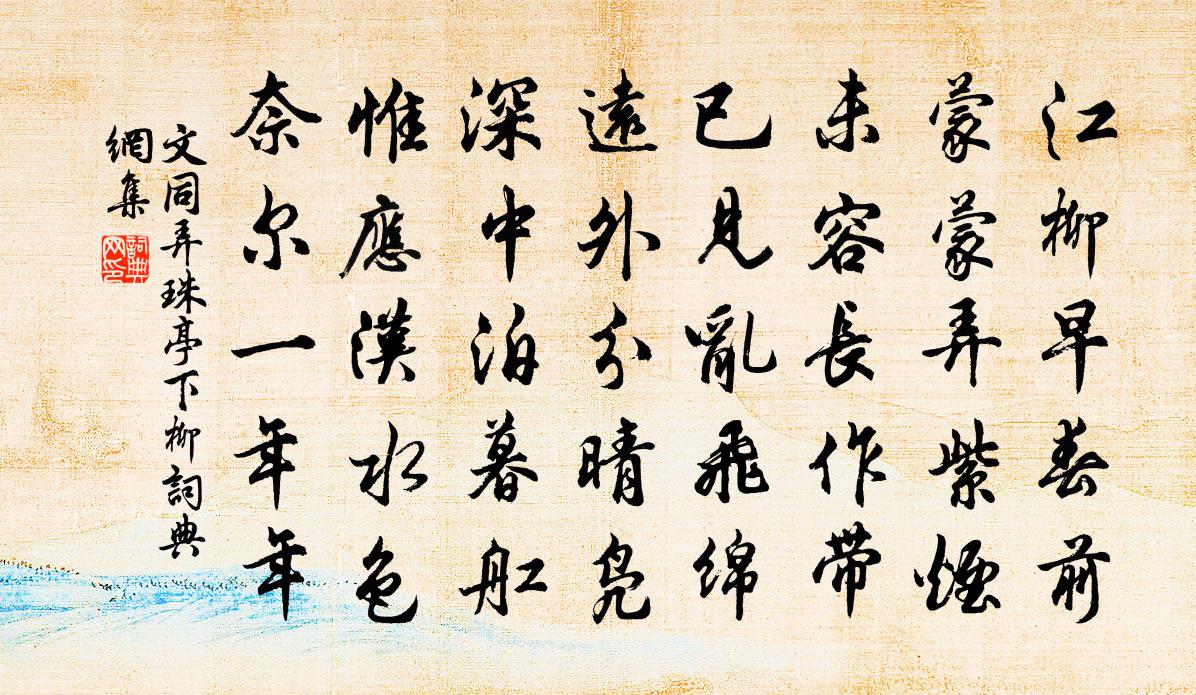 江柳早春前
蒙蒙弄紫煙
未容長作帶
已見亂飛綿
遠外分晴鳧
深中泊暮舡
惟應漢水色
奈尔一年年
文同弄珠亭下柳詞典
網集
詞典
网印